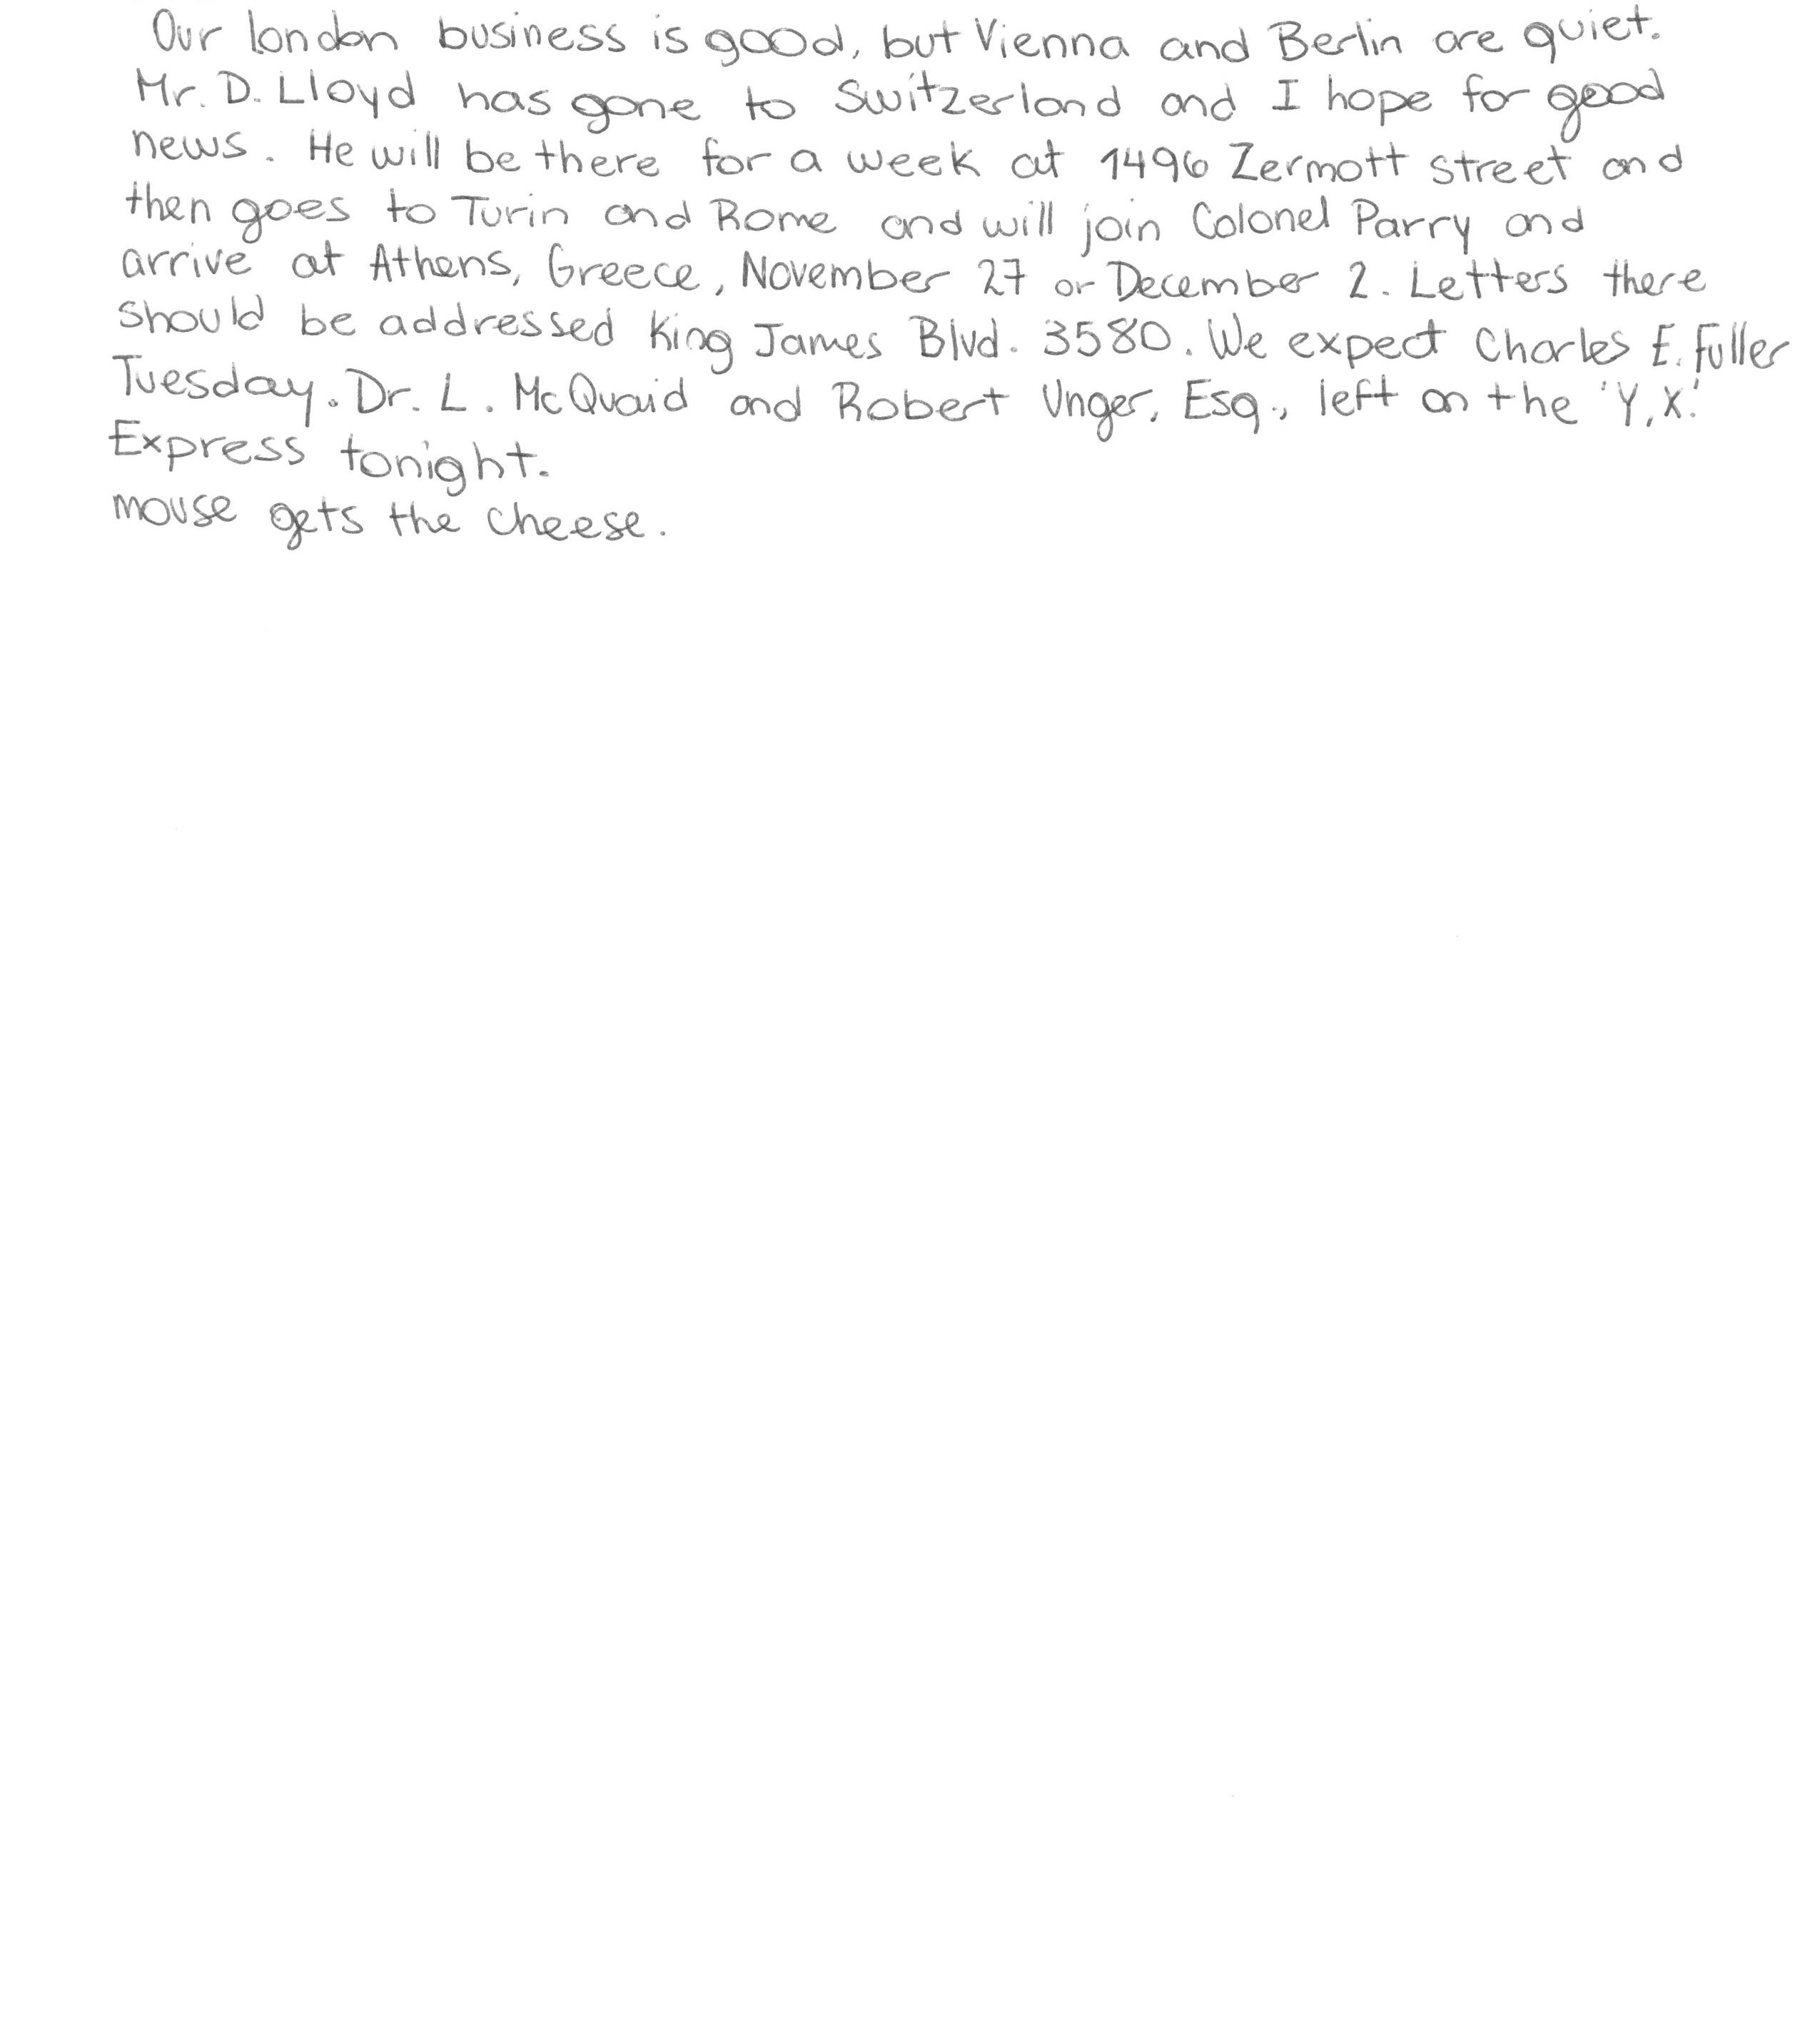 Our london business is good, but Vienna and Berlin are quiet.
Mr. D. Lloyd has gone to Switzerland and I hope for good
news. He will be there for a week at 1496 Zermott street and
then goes to Turin and Rome and will join Colonel Parry and
arrive at Athens, Greece, November 27 or December 2. Letters there
should be addressed King James Blvd. 3580. We expect Charles E. Fuller
Tuesday. Dr. L. McQuaid and Robert Unger, Esq., left on the 'Y,X.'
Express tonight.
mouse gets the cheese.